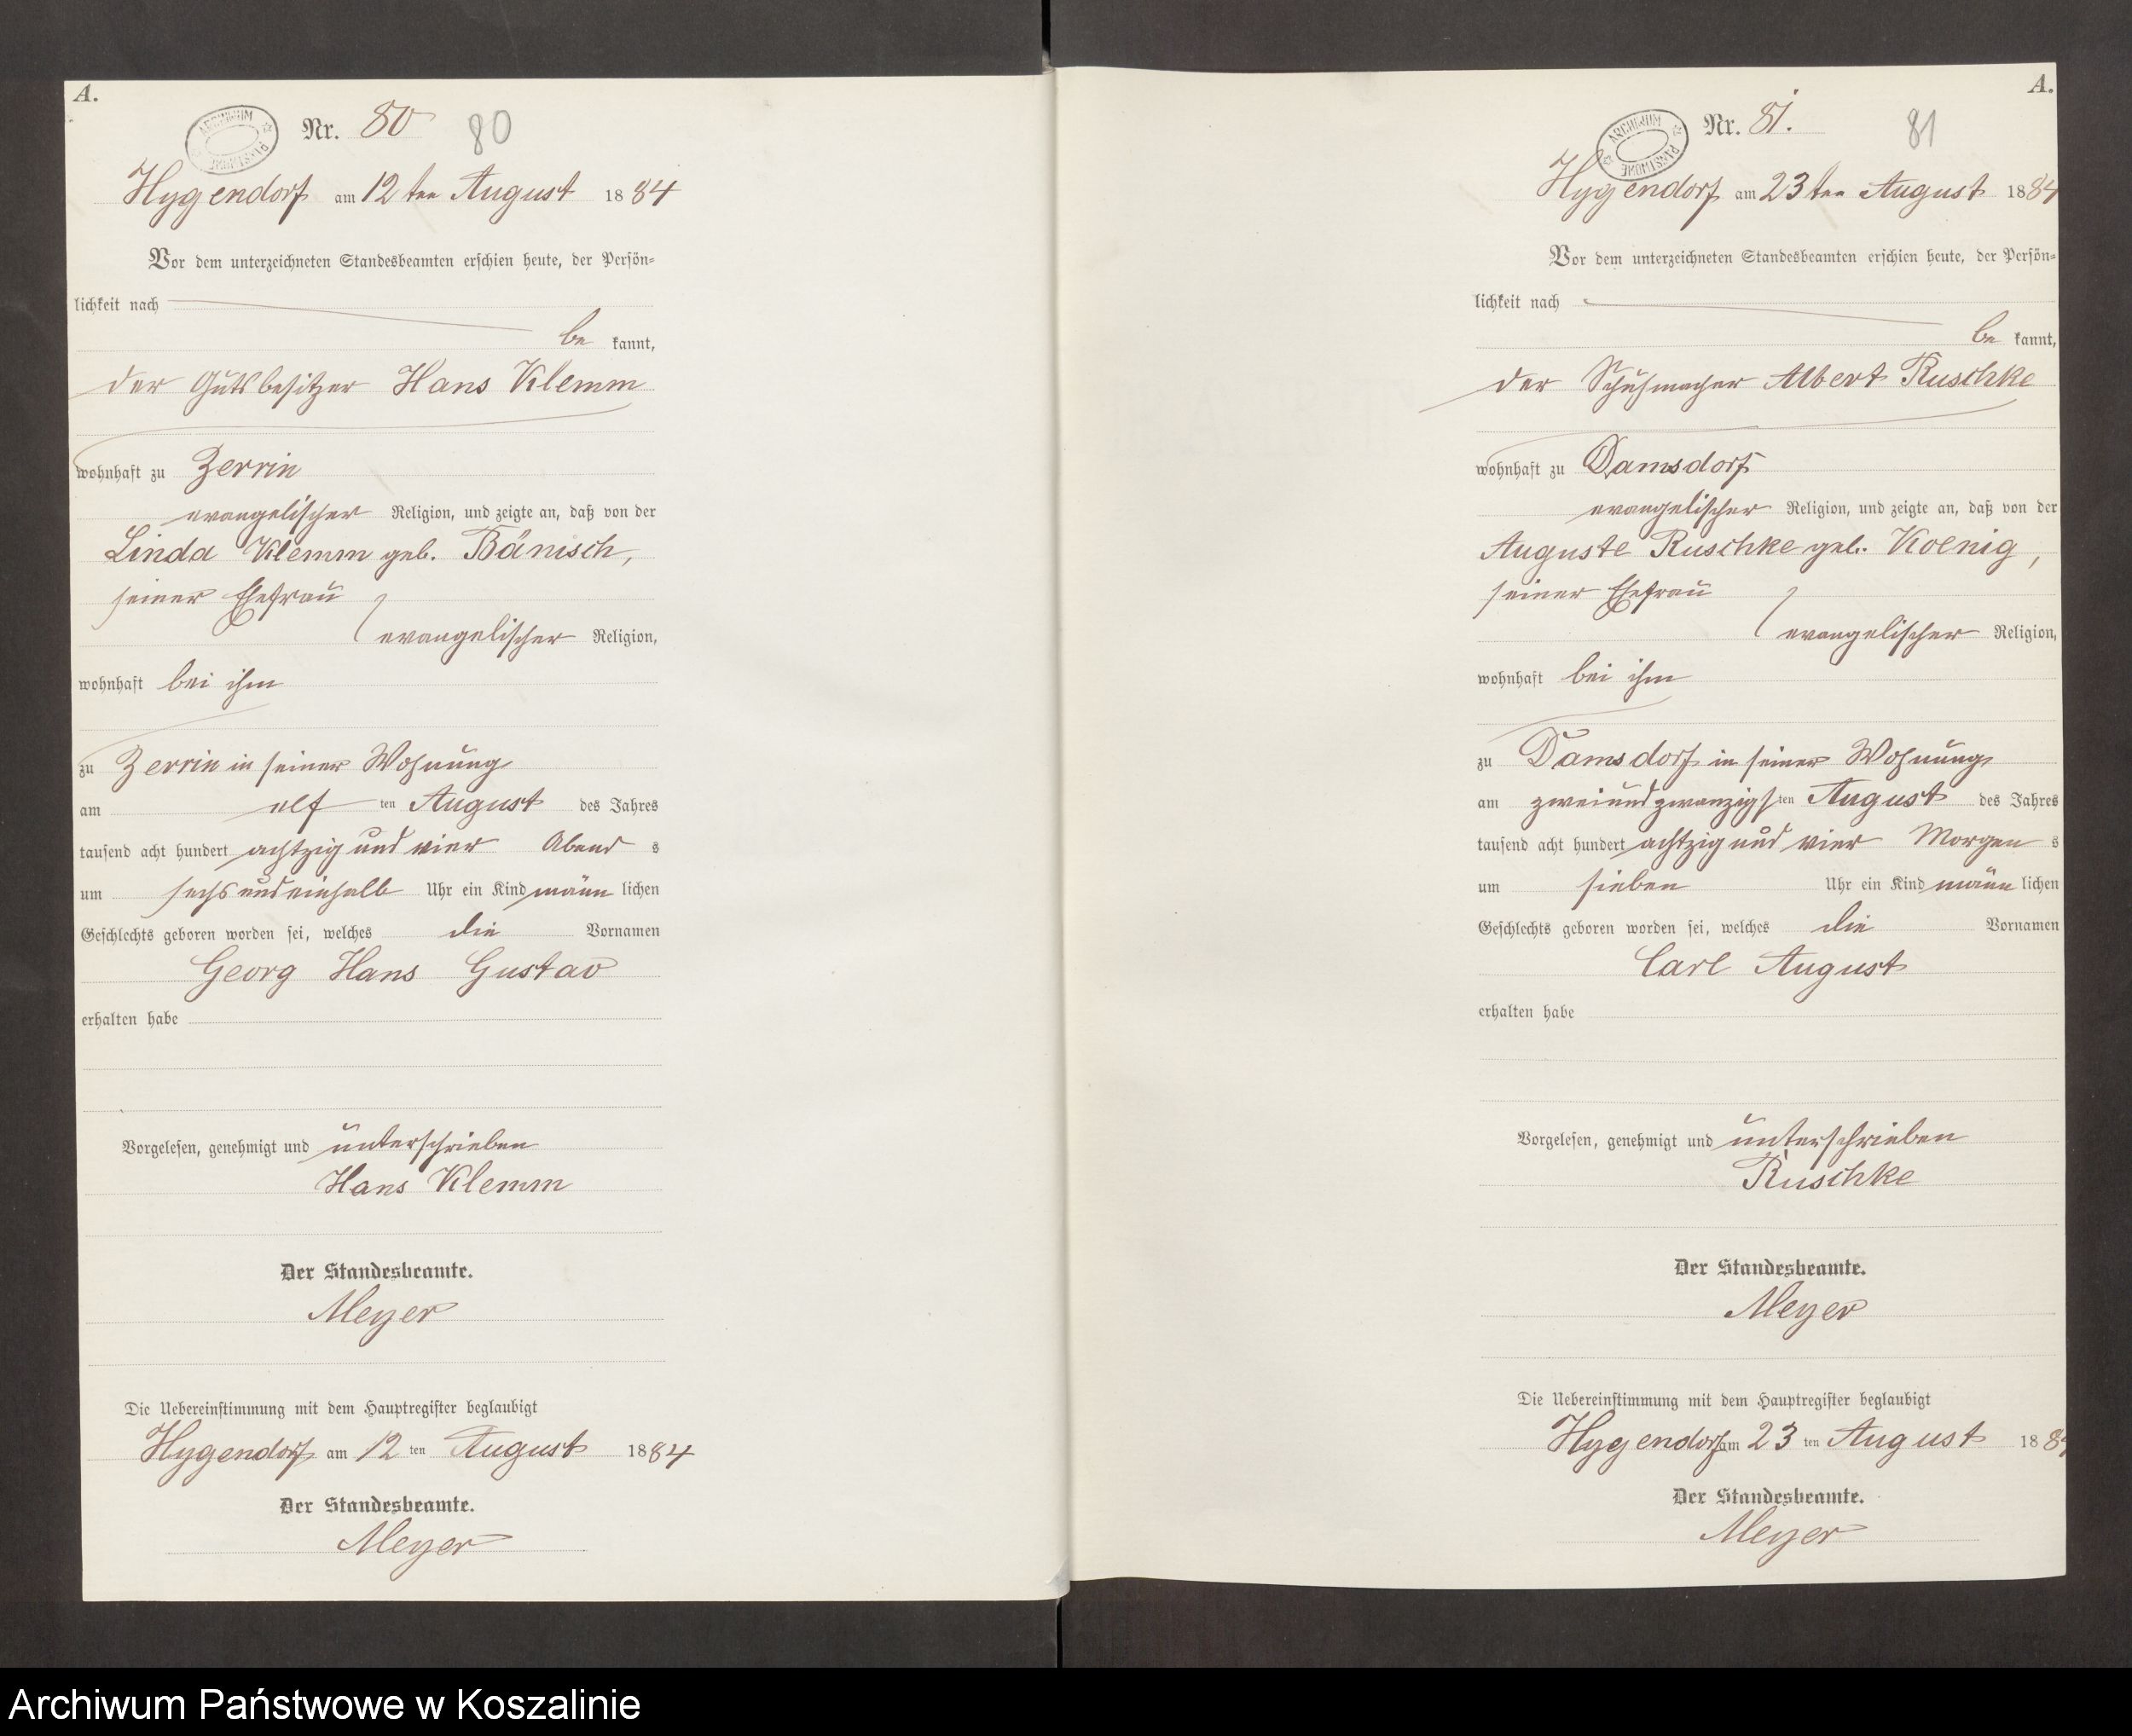 A.
ARCHIWUM PAŃSTWOWE
Nr. 80 80
Hygendorf am 12ten August 1884
Vor dem unterzeichneten Standesbeamten erschien heute, der Persön=
lichkeit nach
be kannt,
der Gutsbesitzer Hans Klemm
wohnhaft zu Zerrin
evangelischer Religion, und zeigte an, daß von der
Linda Klemm geb. Bänisch,
seiner Ehefrau
evangelischer Religion,
wohnhaft bei ihm
zu Zerrin in seiner Wohnung
am elf ten August des Jahres
tausend acht hundert achtzig und vier Abend s
um sechs und einhalb Uhr ein Kind männ lichen
Geschlechts geboren worden sei, welches die Vornamen
Georg Hans Gustav
erhalten habe
Vorgelesen, genehmigt und unterschrieben
Hans Klemm
Der Standesbeamte.
Meyer
Die Uebereinstimmung mit dem Hauptregister beglaubigt
Hygendorf am 12 ten August 1884
Der Standesbeamte.
Meyer
A.
ARCHIWUM PAŃSTWOWE
Nr. 81. 81
Hygendorf am 23ten August 1884
Vor dem unterzeichneten Standesbeamten erschien heute, der Persön=
lichkeit nach
be kannt,
der Schuhmacher Albert Ruschke
wohnhaft zu Damsdorf
evangelischer Religion, und zeigte an, daß von der
Auguste Ruschke geb. Koenig,
seiner Ehefrau
evangelischer Religion,
wohnhaft bei ihm
zu Damsdorf in seiner Wohnung
am zweiundzwanzigs ten August des Jahres
tausend acht hundert achtzig und vier Morgen s
um sieben Uhr ein Kind männ lichen
Geschlechts geboren worden sei, welches die Vornamen
Carl August
erhalten habe
Vorgelesen, genehmigt und unterschrieben
Ruschke
Der Standesbeamte.
Meyer
Die Uebereinstimmung mit dem Hauptregister beglaubigt
Hygendorf am 23 ten August 1884
Der Standesbeamte.
Meyer
Archiwum Państwowe w Koszalinie